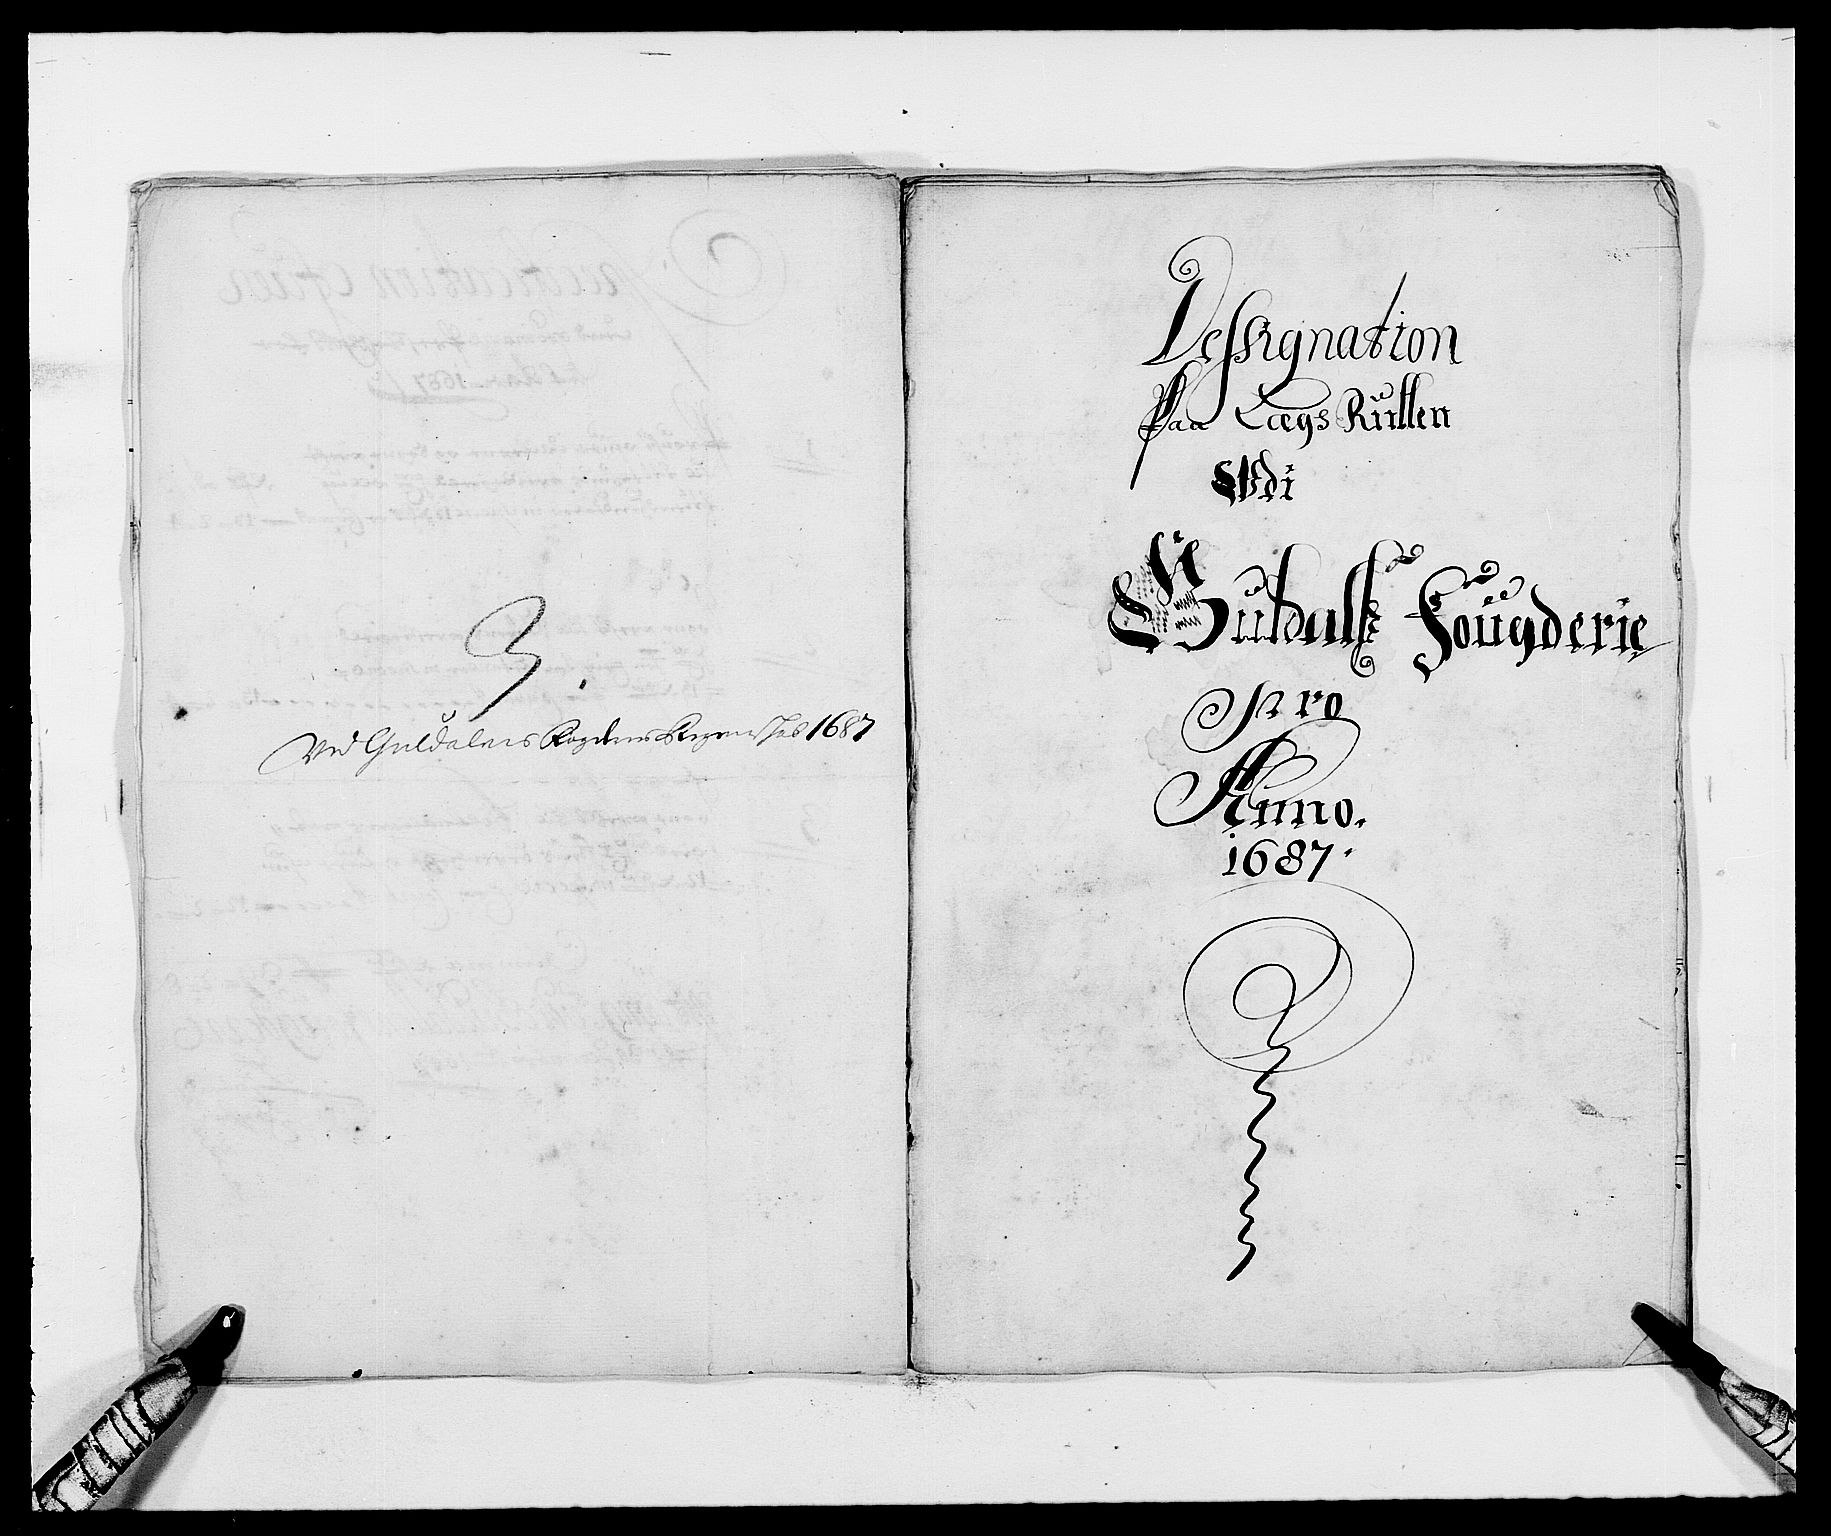 3.
Ved Guldalens Fogderies Regenschab 1687
Dessignation
Paa Lægs Rullen
Udi
Guldalss Fougderie
Pro
Anno.
1687.